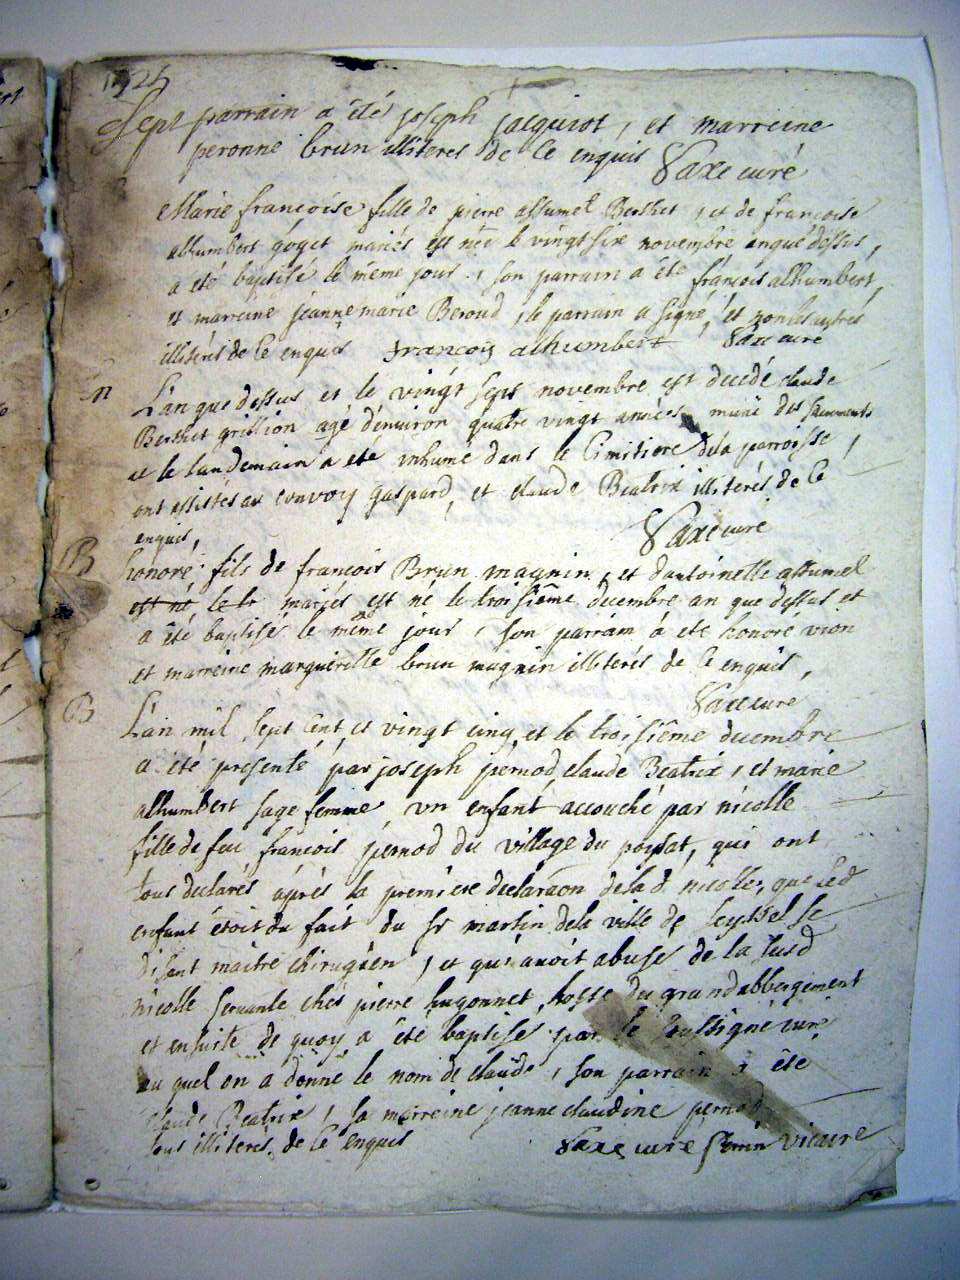 1725
Sept parrain a été joseph jacquiot, et marreine
peronne brun illiteres de ce enquis Vaxe curé
Marie francoise fille de pierre assumel Berthet, et de francoise
alhumbert goget mariés est née le vingt six novembre an que dessus,
a été baptisé le même jour, son parrain a été francois alhumbert,
et marreine jeanne marie Beroud, le parrain a signé, et non les autres
illiterés de ce enquis francois alhumbert Vaxe curé
m L'an que dessus et le vingt sept novembre est decedé claude
Berthet grillion agé d'environ quatre vingt années muni des sacrements
et le landemain a été inhumé dans le Cimitiere de la parroisse,
ont assistés au convoy gaspard, et claude Beatrix illiterés de ce
enquis, Vaxe cure
B honoré fils de francois Brun magnin, et d'antoinette assumel
est né le tr mariés est né le troisiême decembre an que dessus et
a été baptisé le même jour, son parrain a été honoré vion
et marreine marguerite brun magnin illiterés de ce enquis,
Vaxe cure
B L'an mil sept cent et vingt cinq et le troisiême decembre
a été presenté par joseph pernod, claude Beatrix, et marie
alhumbert sage femme, un enfant accouché par nicolle
fille de feu francois pernod du village du poysat, qui ont
tous declarés aprés la premiere declaraon de la d nicolle, que led
enfant étoit du fait du sr martin de la ville de seyssel se
disant maitre chirugien, et qu'i avoit abusé de la susd
nicolle servante chés pierre hugonnet hoste du grand abbergement
et ensuite de quoy a été baptisé par le soussigné curé
au quel on a donné le nom de claude, son parrain a été
claude Beatrix, sa marreine jeanne claudine pernod
tous illiteres de ce enquis Vaxe cure vicaire